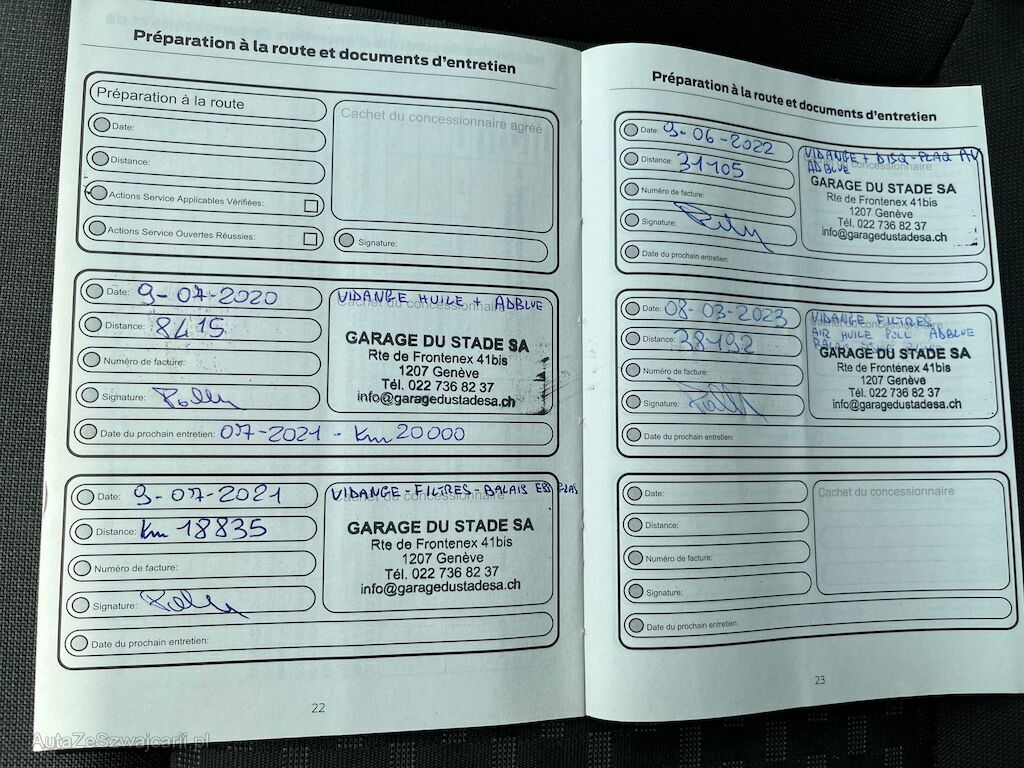 Préparation à la route et documents d'entretien
Préparation à la route
Date:
Distance:
Actions Service Applicables Vérifiées:
Actions Service Ouvertes Réussies:
Cachet du concessionnaire agréé
Signature:
Date: 9-07-2020
Distance: 8415
Numéro de facture:
Signature:
VIDANGE HUILE + ADBLUE
Cachet du concessionnaire
GARAGE DU STADE SA
Rte de Frontenex 41bis
1207 Genève
Tél. 022 736 82 37
info@garagedustadesa.ch
Date du prochain entretien: 07-2021 - Km 20000
Date: 9-07-2021
Distance: Km 18835
Numéro de facture:
Signature:
VIDANGE - FILTRES - BALAIS
Cachet du concessionnaire
GARAGE DU STADE SA
Rte de Frontenex 41bis
1207 Genève
Tél. 022 736 82 37
info@garagedustadesa.ch
Date du prochain entretien:
22
Préparation à la route et documents d'entretien
Date: 9-06-2022
Distance: 31105
Numéro de facture:
Signature:
VIDANGE + DISQ-PLAQ AV
ADBLUE
GARAGE DU STADE SA
Rte de Frontenex 41bis
1207 Genève
Tél. 022 736 82 37
info@garagedustadesa.ch
Date du prochain entretien:
Date: 08-03-2023
Distance: 38192
Numéro de facture:
Signature:
VIDANGE FILTRES
AIR HUILE POLL ADBLUE
GARAGE DU STADE SA
Rte de Frontenex 41bis
1207 Genève
Tél. 022 736 82 37
info@garagedustadesa.ch
Date du prochain entretien:
Date:
Distance:
Numéro de facture:
Signature:
Cachet du concessionnaire
Date du prochain entretien:
23
AutaZeSzwajcarii.pl